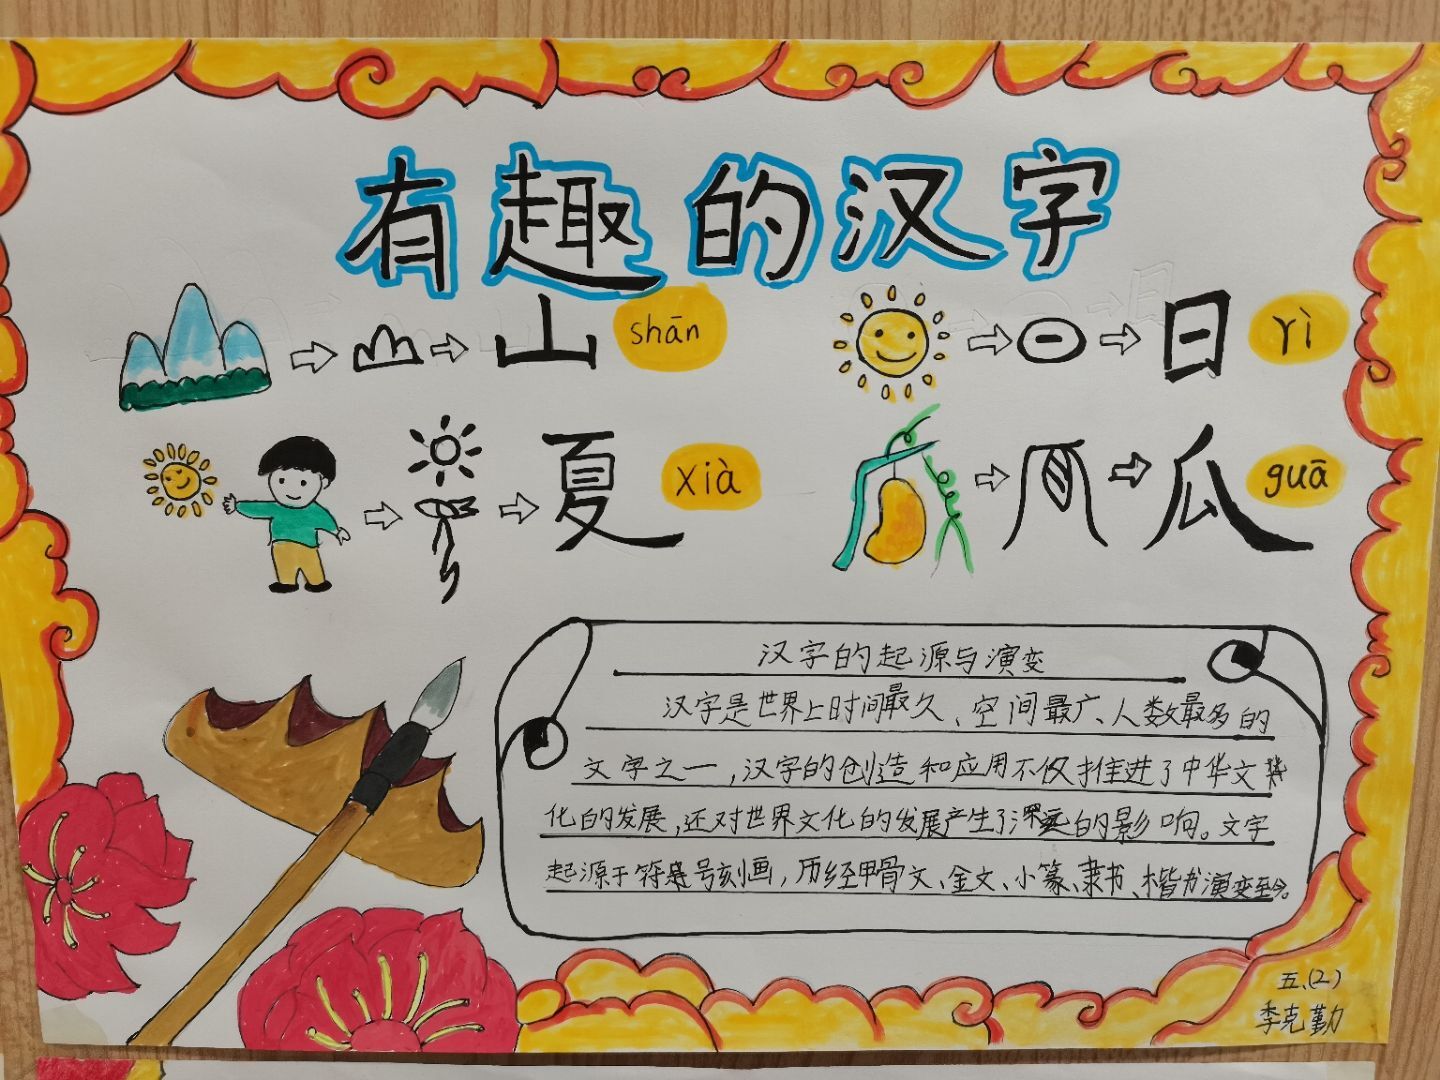 有趣的汉字
山 shān
日 rì
夏 xià
瓜 guā
汉字的起源与演变
汉字是世界上时间最久、空间最广、人数最多的
文字之一,汉字的创造和应用不仅推进了中华文
化的发展,还对世界文化的发展产生了深远的影响。文字
起源于符号刻画,历经甲骨文、金文、小篆、隶书、楷书演变至今。
五、(2)
李克勤